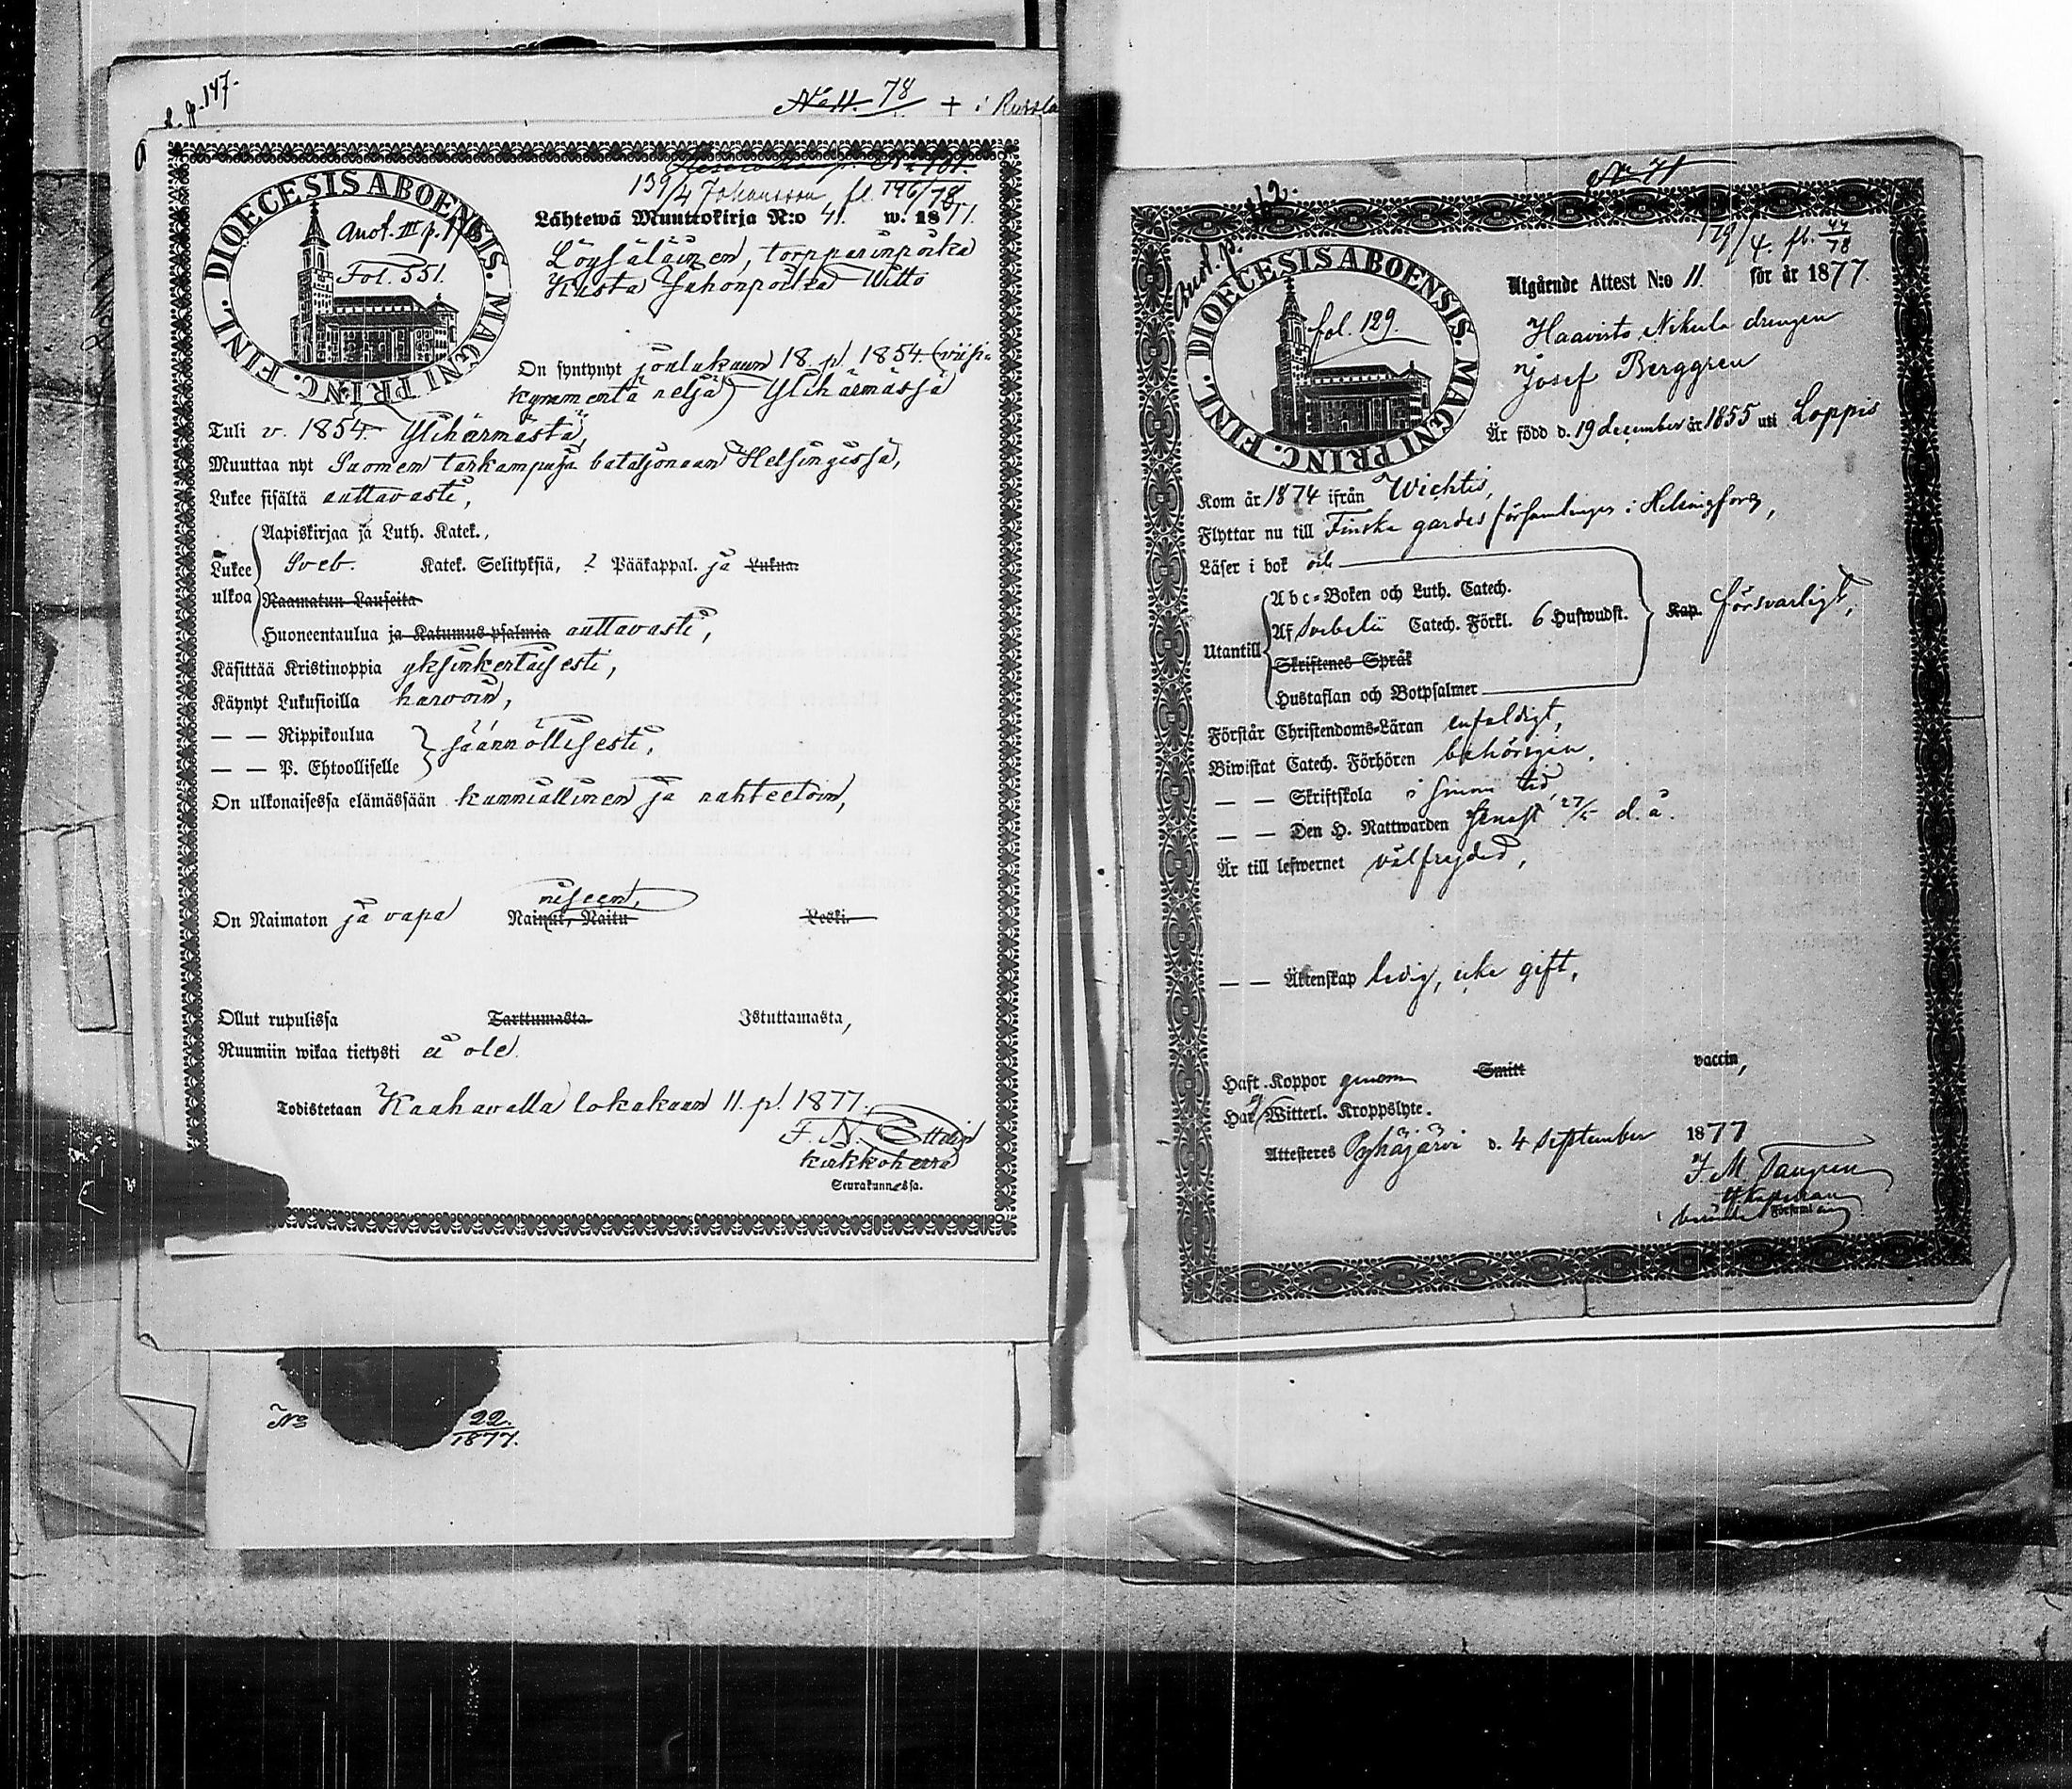 147.
78
+ i Russla
139/4 Johansson fl. 196/78
DIOECESIS ABOENSIS. MAGNI PRINC. FINL.
Anot. III p.
Fol. 551.
Lähtewä Muuttokirja N:o 41. w. 1877.
Löysäläinen, torpparinpoika
Kusta Juhonpoika Witto
On syntynyt joulukuun 18 p. 1854 (viisi-
kymmentä neljä) Ylihärmässä
Tuli v. 1854 Ylihärmästä,
Muuttaa nyt Suomen tarkampuja bataljonaan Helsingissä,
Lukee sisältä auttavasti,
Aapiskirjaa ja Luth. Katek.,
Lukee ulkoa Sveb. Katek. Selityksiä, 2 Pääkappal. ja Lukua.
Raamatun Lauseita
Huoneentaulua ja Katumus-psalmia auttavasti,
Käsittää Kristinoppia yksinkertaisesti,
Käynyt Lukusioilla harvoin,
— — Rippikoulua
— — P. Ehtoolliselle säännöllisesti,
On ulkonaisessa elämässään kunniallinen ja nuhteetoin,
On Naimaton ja vapa naiseen, Nainut, Naitu Leski.
Ollut rupulissa Tarttumasta Istuttamasta,
Ruumiin wikaa tietysti ei ole.
Todistetaan Kauhavalla lokakuun 11 p. 1877.
F. N.
kirkkoherra
Seurakunnassa.
No 22./1877.
No 71
129/4. fl. 44/78
DIOECESIS ABOENSIS. MAGNI PRINC. FINL.
fol. 129.
Utgående Attest N:o 11 för år 1877.
Haavisto Nikula drengen
Josef Berggren
Är född d. 19 december år 1855 uti Loppis
Kom år 1874 ifrån Wichtis,
Flyttar nu till Finska gardes församlingen i Helsingfors,
Läser i bok och
Abc-Boken och Luth. Catech.
Utantill Af Svebelii Catech. Förkl. 6 Hufwudst. Kap. försvarligt,
Skriftenes Språk
Hustaflan och Botpsalmer
Förstår Christendoms-Läran enfaldigt,
Biwistat Catech. Förhören behörigen,
— — Skriftskola i sinom tid,
— — Den H. Nattwarden senast 27/5 d. å.
Är till lefwernet välfrejdad,
— — Äktenskap ledig, icke gift,
Haft Koppor genom Smitt vaccin,
Har Witterl. Kroppslyte.
Attesteras Pyhäjärvi d. 4 September 1877